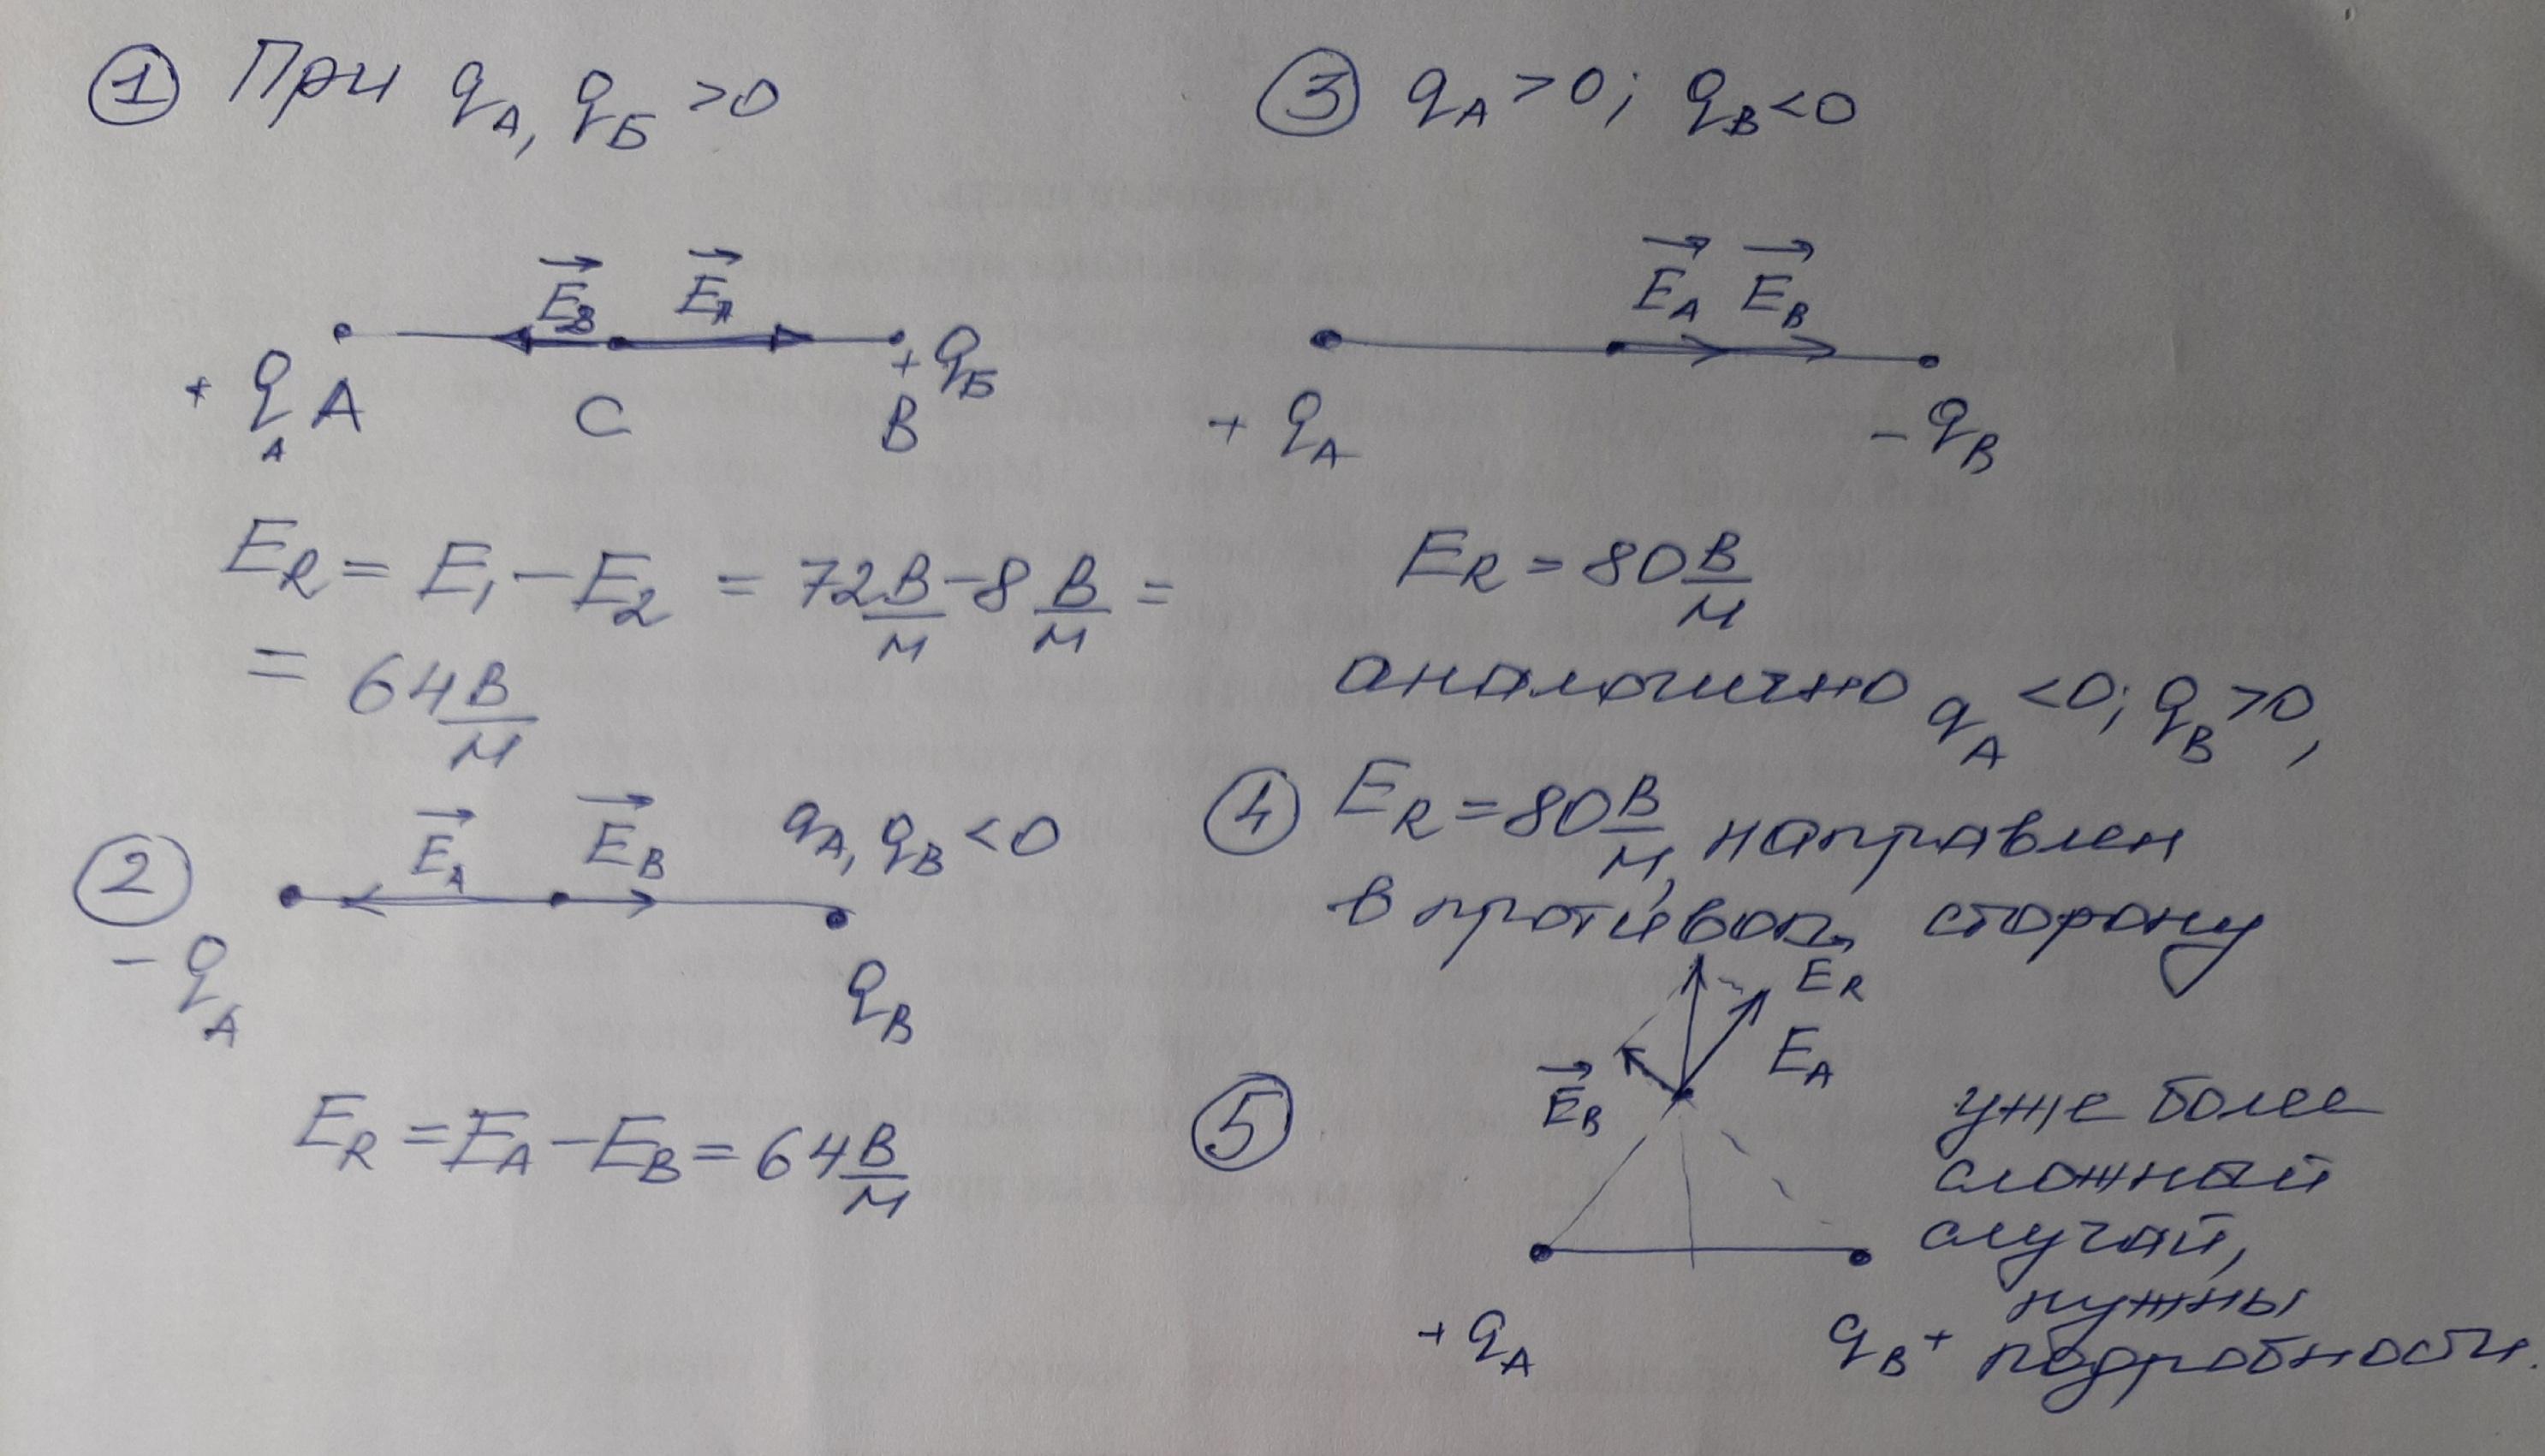 ① При q_A, q_Б >0
E_B E_A
+ q_A A C B + q_Б
E_R = E_1 − E_2 = 72 В/м − 8 В/м =
= 64 В/м
② E_A E_B q_A, q_B <0
− q_A q_B
E_R = E_A − E_B = 64 В/м
③ q_A >0; q_B <0
E_A E_B
+ q_A − q_B
E_R = 80 В/м
аналогично q_A <0; q_B >0,
④ E_R = 80 В/м, направлен
в противоп. сторону
⑤ E_R
E_B E_A
уже более
сложный
случай,
нужны
+ q_A q_B + подробности.